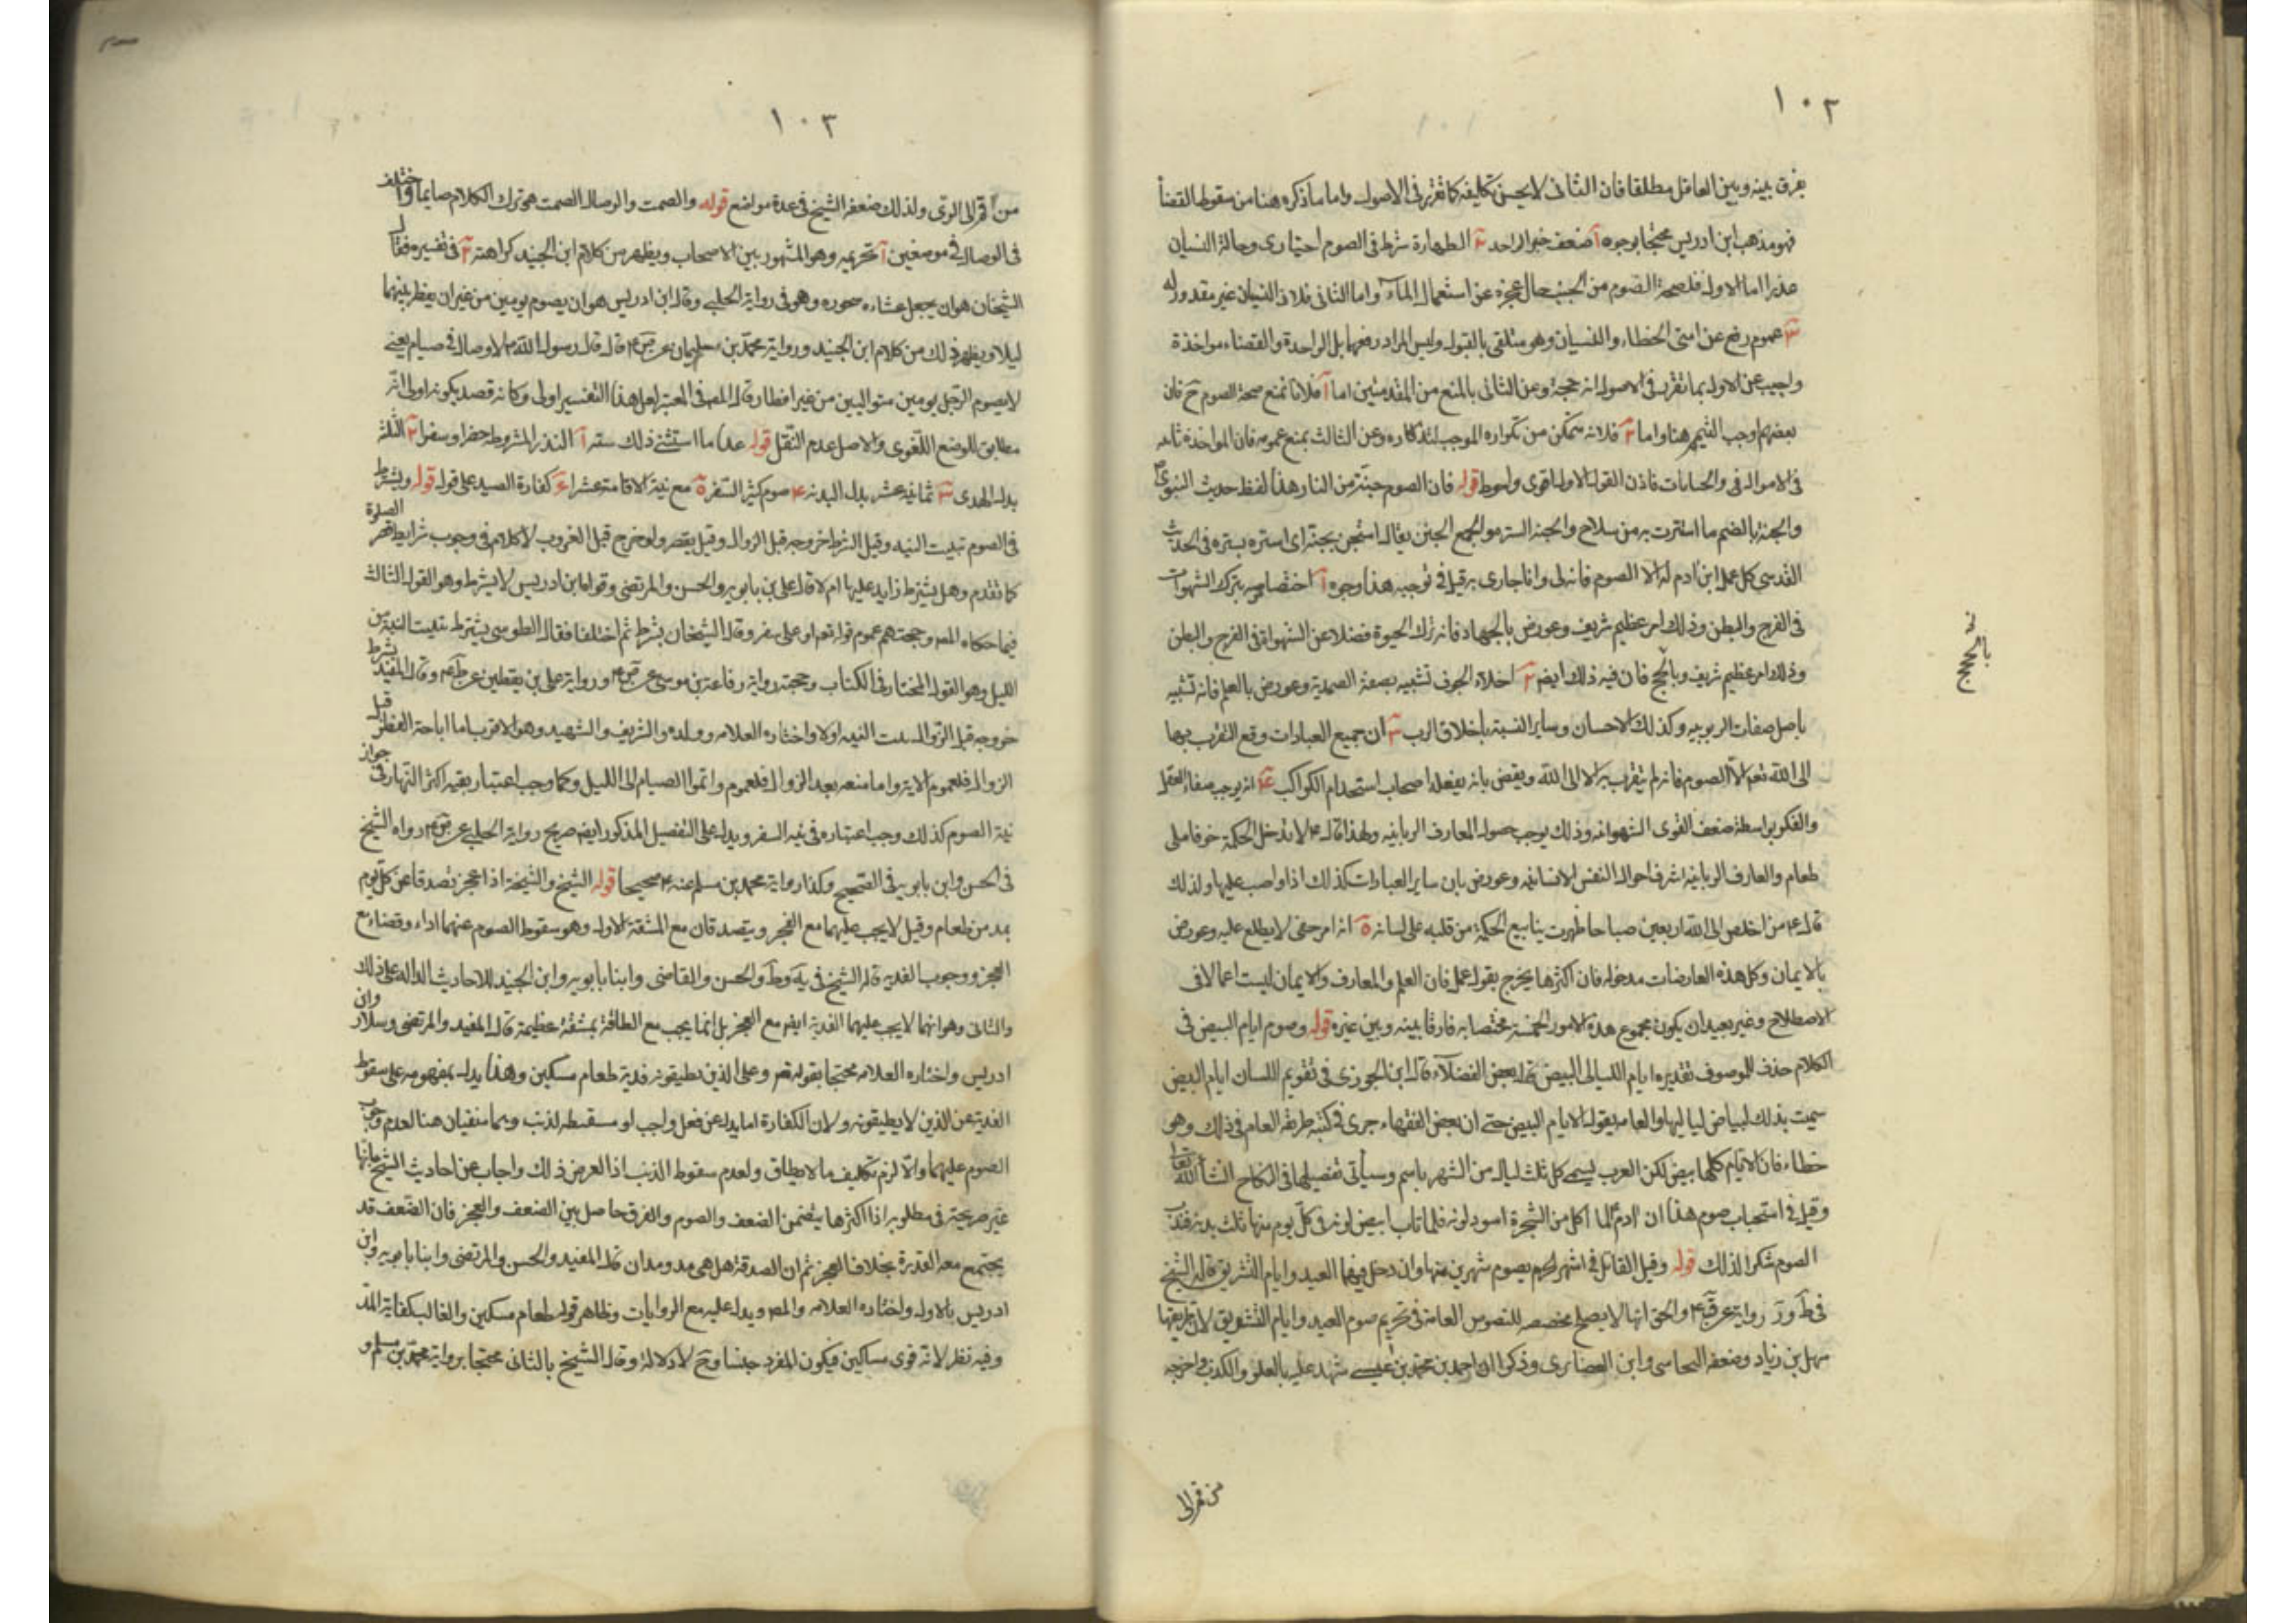 ١٠٢
يفرق بينه وبين الغافل مطلقا فان الثانى لا يحسن تكليفه كما تقرر فى الاصول واما ما ذكره هنا من سقوط القضأ
فهو مذهب ابن ادريس محتجا بوجوه آ ضعف خبر الواحد ٢ الطهارة شرط فى الصوم اختيارى وحالة النسيان
عذر اما الاول فلصحة الصوم من الجنب حال عجزه عن استعمال المآء واما الثانى فلان النسيان غير مقدور له
٣ عموم رفع عن امتى الخطاء والنسيان وهو متلقى بالقبول وليس المراد رفعهما بل المواخذة والقضاء مواخذة
واجيب عن الاول بما تقرر فى الاصول انه حجة وعن الثانى بالمنع من المقدمتين اما آ فلانا نمنع صحة الصوم ح فان
بعضهم اوجب التيمم هنا واما ٢ فلانه متمكن من تكراره الموجب لتذكاره وعن الثالث بمنع عمومه فان المواخذة ثابته
فى الاموال والجنايات فاذن القول الاول اقوى واحوط قوله فان الصوم جنة من النار هذا لفظ حديث النبوى ص
والجنة بالضم ما استترت به من سلاح والجنة الستر والجمع الجنن يقال استجن بجنة اى استتر بستره فى الحديث
القدسى كل عمل ابن ادم له الا الصوم فانه لى وانا اجازى به قيل فى توجيه هذا وجوه آ اختصاصه بترك الشهوات
فى الفرج والبطن وذلك امر عظيم شريف وعورض بالجهاد فانه ترك الحيوة فضلا عن الشهوة فى الفرج والبطن
وذلك امر عظيم شريف وبالحج فان فيه ذلك ايضم ٢ اخلاء الجوف تشبيه بصفة الصمدية وعورض بالعلم فانه تشبيه
باصل صفات الربوبيه وكذلك الاحسان وساير النسبة باخلاق الرب ٣ ان جميع العبادات وقع التقرب بها
الى الله تعم الا الصوم فانه لم يتقرب به الا الى الله ونقض بانه يفعله اصحاب استخدام الكواكب ٤ انه يوجب صفاء العقل
والفكر بواسطة ضعف القوى الشهوانه وذلك يوجب حصول المعارف الربانيه ولهذا قال ع لا تدخل الحكمة جوفا ملى
طعام والمعارف الربانية اشرف احوال النفس الانسانيه وعورض بان ساير العبادات كذلك اذا واصب عليها ولذلك
قال ع من اخلص الى الله اربعين صباحا ظهرت ينابيع الحكمة من قلبه على لسانه ٥ انه امر خفى لا يطلع عليه وعورض
بالايمان وكل هذه المعارضات مدخوله فان اكثرها يخرج بقوله عمل فان العلم والمعارف والايمان ليست اعمالا فى
الاصطلاح وغير بعيد ان يكون مجموع هذه الامور الخمسة مختصا به فارقا بينه وبين غيره قوله وصوم ايام البيض فى
الكلام حذف للموصوف تقديره ايام الليالى البيض قاله بعض الفضلآء قال ابن الجوزى فى تقويم اللسان ايام البيض
سميت بذلك لبياض لياليها والعامة يقول الايام البيض حتى ان بعض الفقهاء جرى فى كتبه طريقة العام فى ذلك وهى
خطاء فان الايام كلها بيض لكن العرب يسمى كل ثلث ليال من الشهر باسم وسيأتى تفصيلها فى النكاح انشأ الله تعا
وقيل فى استحباب صوم هذا ان ادم لما اكل من الشجرة اسود لونه فلما تاب ابيض لونه فى كل يوم منها ثلث بدنه فندب
الصوم شكرا لذلك قوله وقيل القاتل فى اشهر الحرم يصوم شهرين منها وان دخل فيهما العيد وايام التشريق قاله الشيخ
فى ط ور رواية عن ق ع والحق انها لا يصلح مخصصه للنصوص العامة فى تحريم صوم العيد وايام التشريق لان طريقها
سهل بن زياد وضعفه النجاسى وابن الغضايرى وذكرا ان احمد بن محمد بن عيسى شهد عليه بالغلو والكذب واخرجه
من قم الى
بالحج
١٠٣
من قم الى الرى ولذلك ضعفه الشيخ فى عدة مواضع قوله والصمت والوصال الصمت هو ترك الكلام صايما واختلف
فى الوصال فى موضعين آ تحريمه وهو المشهور بين الاصحاب ويظهر من كلام ابن الجنيد كراهته ٢ فى تفسيره فقال
الشيخان هو ان يجعل عشاءه سحوره وهو فى رواية الحلبى وقال ابن ادريس هو ان يصوم يومين من غير ان يفطر بينهما
ليلا ويظهر ذلك من كلام ابن الجنيد ورواية محمد بن سليمان عن ق ع قال قال رسول الله ص لا وصال فى صيام يعنى
لا يصوم الرجل يومين متواليين من غير افطار قال المص فى المعتبر لعل هذا التفسير اولى وكانه قصد بكونه اولى انه
مطابق للوضع اللغوى والاصل عدم النقل قوله عدا ما استثنى ذلك سته آ النذر المشروط حضرا وسفرا ٢ الثلثه
بدل الهدى ٣ ثمانية عشر بدل البدنه ٤ صوم كثير السفر ٥ مع نية الاقامة عشرا ٦ كفارة الصيد على قول قوله ويشترط
فى الصوم تبييت النيه وقيل الشرط خروجه قبل الزوال وقيل يقصر ولو خرج قبل الغروب لا كلام فى وجوب شرايط قصر الصلوة
كما تقدم وهل يشترط زايد عليها ام لا قال على بن بابويه والحسن والمرتضى وقواه ابن ادريس لا يشترط وهو القول الثالث
فيما حكاه المص وحجتهم عموم قوله تعم او على سفر وقال الشيخان بشرط ثم اختلفا فقال الطوسى يشترط تبييت النية من
الليل وهو القول المختار فى الكتاب وحجته رواية رفاعة بن موسى عن ق ع ورواية على بن يقطين عن ظم ع وقال المفيد بشرط
خروجه قبل الزوال بيت النيه اولا واختاره العلامه وولده والشريف والشهيد وهو الاقرب اما اباحة الفطر قبل
الزوال فلعموم الاية واما منعه بعد الزوال فلعموم واتموا الصيام الى الليل وكما وجب اعتبار بقيه اكثر النهار فى جواز
نية الصوم كذلك وجب اعتباره فى نيه السفر ويدل على التفصيل المذكور ايضم صريح رواية الحلبى عن ق ع رواه الشيخ
فى الحسن وابن بابويه فى الصحيح وكذا رواية محمد بن مسلم عنه ع صحيحا قوله الشيخ والشيخة اذا عجز تصدقا عن كل يوم
بمد من طعام وقيل لا يجب عليهما مع العجز ويتصدقان مع المشقة الاول وهو سقوط الصوم عنهما اداء وقضاء مع
العجز ووجوب الفديه قاله الشيخ فى يه وط والحسن والقاضى وابنا بابويه وابن الجنيد للاحاديث الداله على ذلك
والثانى وهو انهما لا يجب عليهما الفدية ايضم مع العجز بل انما يجب مع الطاقة بمشقة عظيمة قاله المفيد والمرتضى وسلار وابن
ادريس واختاره العلامه محتجا بقوله تعم وعلى الذين يطيقونه فدية طعام مسكين وهذا يدل بمفهومه على سقوط
الفدية عن الذين لا يطيقونه ولان الكفارة اما بدل عن فعل واجب او مسقطه لذنب وهما منفيان هنا لعدم وجوب
الصوم عليهما والا لزم تكليف ما لا يطاق ولعدم سقوط الذنب اذ العرض ذلك واجاب عن احاديث الشيخ بانها
غير صريحة فى مطلوبه اذا اكثرها يتضمن الضعف والصوم والفرق حاصل بين الضعف والعجز فان الضعف قد
يجتمع معه القدرة بخلاف العجز ثم ان الصدقة هل هى مد ومدان قال المفيد والحسن والمرتضى وابنا بابويه وابن
ادريس بالاول واختاره العلامه والمص ويدل عليه مع الروايات وظاهر قوله طعام مسكين والغالب كفاية المد
وفيه نظر لانه قوى مساكين فيكون المفرد جنسا وح لا دلالة وقال الشيخ بالثانى محتجا برواية محمد بن مسلم و